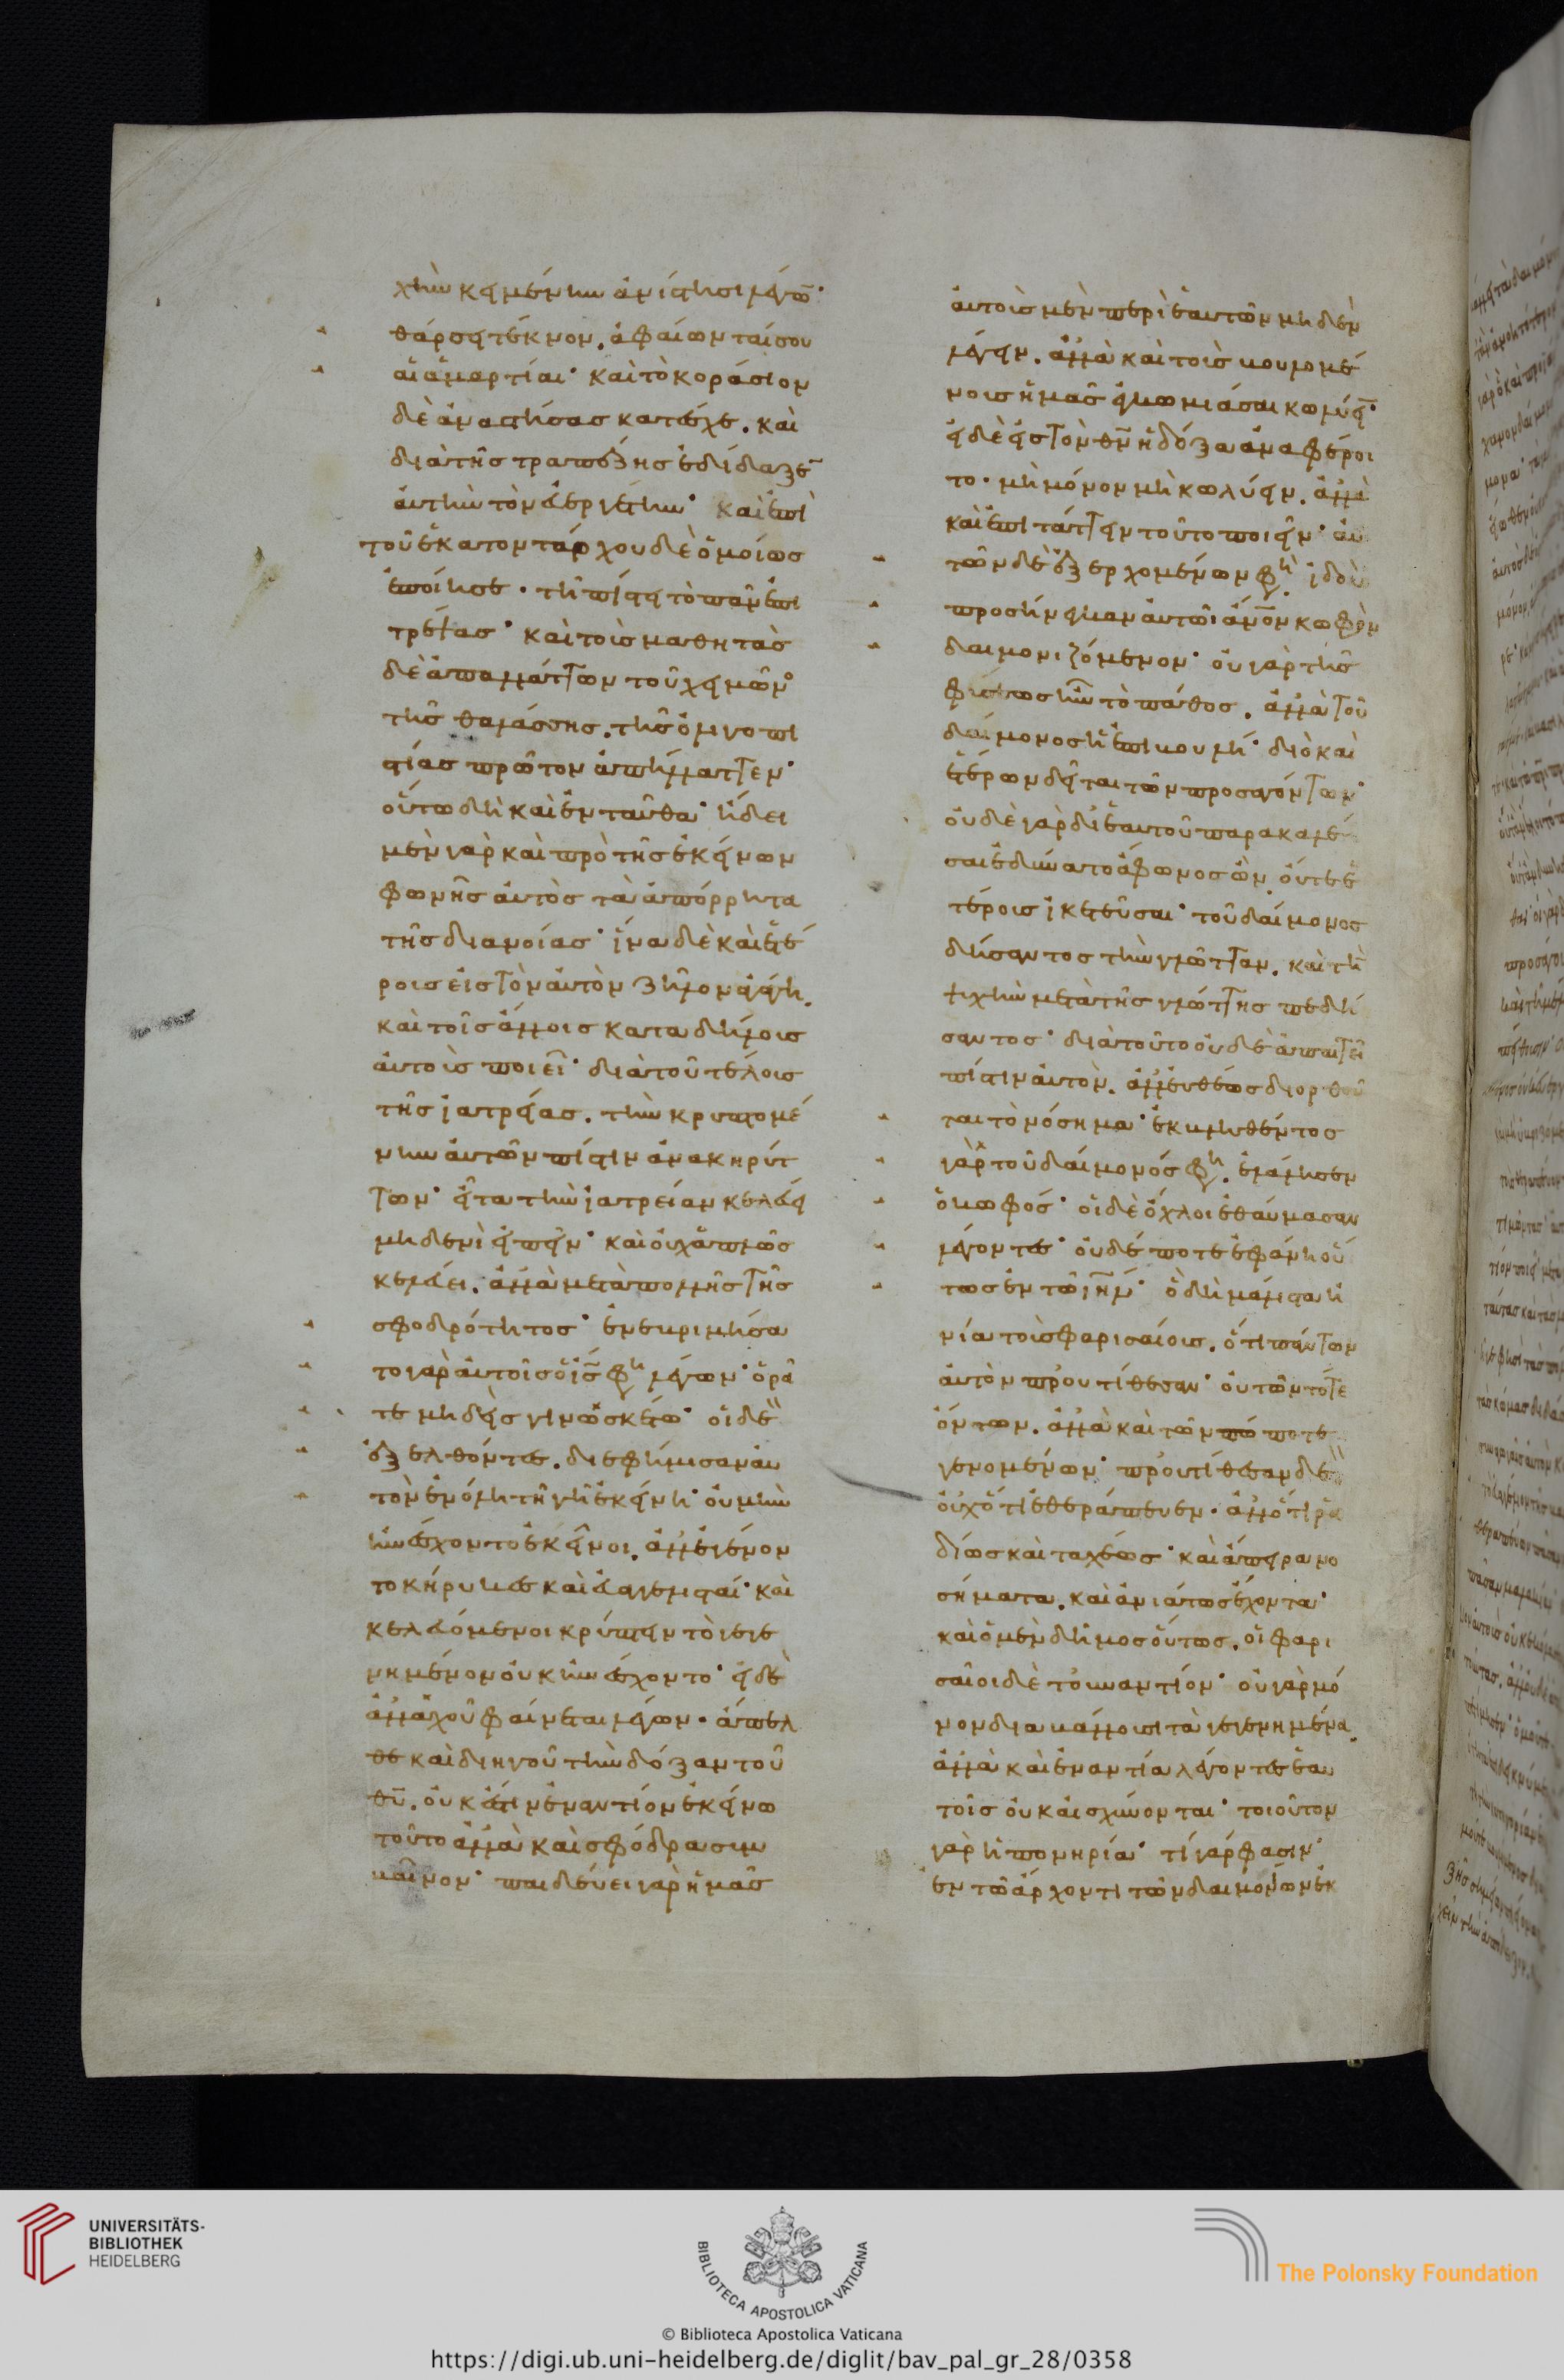 χὴν κειμένην ἀνίστησι λέγω̅·
θάρσει τέκνον. ἀφαίωνταί σου
αἱ ἁμαρτίαι· καὶ τὸ κοράσιον
δὲ ἀναστήσας κατέσχε. καὶ
διὰ τῆς τραπέζης ἐδίδαξε̅
αὐτὴν τὸν εὐεργέτην· καὶ ἐπὶ
τοῦ ἑκατοντάρχου δὲ ὁμοίως
ἐποίησε. τῆ πίστει τὸ πᾶν ἐπι
τρέψας· καὶ τοὺς μαθητὰς
δὲ ἀπαλλάττων τοῦ χειμῶνο
τῆς θαλάσσης. τῆς ὀλιγοπι
στίας πρῶτον ἀπήλλαττεν·
οὕτω δὴ καὶ ἐνταῦθα· ἤδει
μὲν γὰρ καὶ πρὸ τῆς ἐκείνων
φωνῆς αὐτὸς τὰ ἀπόρρητα
τῆς διανοίας· ἵνα δὲ καὶ ἑτέ
ροις εἰς τὸν αὐτὸν ζῆλον ἀγάγη.
καὶ τοῖς ἄλλοις καταδήλους
αὐτοὺς ποιεῖ· διὰ τοῦ τέλους
τῆς ἰατρείας. τὴν κρυπτομέ
νην αὐτῶν πίστιν ἀνακηρύτ
των· εἶτα τὴν ἰατρείαν κελεύει
μηδενὶ εἰπεῖν· καὶ οὐχ ἁπλῶς
κελεύει. ἀλλὰ μετὰ πολλῆς τῆς
σφοδρότητος· ἐνεβριμήσα
το γὰρ αὐτοῖς ὁ ι̅ς̅ φη λέγων· ὁρᾶ
τε μηδεὶς γινωσκέτω· οἱ δὲ
ἐξελθόντες. διεφήμισαν αὐ
τὸν ἐν ὅλη τῆ γῆ ἐκείνη· οὐ μὴν
ἠνείχοντο ἐκεῖνοι. ἀλλ' ἐγένον
το κήρυκες καὶ εὐαγγελισταί· καὶ
κελευόμενοι κρύπτειν τὸ γεγε
νημένον οὐκ ἠνείχοντο· εἰ δὲ
ἀλλαχοῦ φαίνεται λέγων. ἄπελ
θε καὶ διηγοῦ τὴν δόξαν τοῦ
θ̅υ̅. οὐκ ἔστιν ἐναντίον ἐκείνω
τοῦτο ἀλλὰ καὶ σφόδρα συμ
βαῖνον· παιδεύει γὰρ ἡμᾶς
αὐτοὺς μὲν περὶ ἑαυτῶν μηδὲν
λέγειν. ἀλλὰ καὶ τοὺς βουλομέ
νους ἡμᾶς ἐγκωμιάσαι κωλύει̅·
εἰ δὲ εἰς τὸν θ̅ν̅ ἡ δόξα ἀναφέροι
το. μὴ μόνον μὴ κωλύειν. ἀλλὰ
καὶ ἐπιτάττειν τοῦτο ποιεῖν· αὐ
τῶν δὲ ἐξερχομένων φη. ἰδοὺ
προσήνεγκαν αὐτῶι ἀν̅ο̅ν κωφὸν
δαιμονιζόμενον· οὐ γὰρ τῆς
φύσεως ἦν τὸ πάθος. ἀλλὰ τοῦ
δαίμονος ἡ ἐπιβουλή· διὸ καὶ
ἑτέρων δεῖται τῶν προσαγόντων·
οὐδὲ γὰρ δι' ἑαυτοῦ παρακαλέ
σαι ἐδύνατο ἄφωνος ὤν. οὔτε ἑ
τέρους ἱκετεῦσαι· τοῦ δαίμονος
δήσαντος τὴν γλῶτταν. καὶ τὴ
ψυχὴν μετὰ τῆς γλώττης πεδή
σαντος· διὰ τοῦτο οὐδὲ ἀπαιτεῖ
πίστιν αὐτὸν. ἀλλ' εὐθέως διορθοῦ
ται τὸ νόσημα· ἐκβληθέντος
γὰρ τοῦ δαίμονός φη. ἐλάλησεν
ὁ κωφός· οἱ δὲ ὄχλοι ἐθαύμασαν
λέγοντες· οὐδέποτε ἐφάνη οὕ
τως ἐν τῶ ι̅η̅λ̅· ὃ δὴ μάλιστα ἠ
νία τοὺς φαρισαίους. ὅτι πάντων
αὐτὸν προυτίθεσαν· οὐ τῶν τότε
ὄντων. ἀλλὰ καὶ τῶν πώποτε
γενομένων· προυτίθεσαν δὲ
οὐχ ὅτι ἐθεράπευεν. ἀλλ' ὅτι ῥα
δίως καὶ ταχέως· καὶ ἄπειρα νο
σήματα. καὶ ἀνιάτως ἔχοντα·
καὶ ὁ μὲν δῆμος οὕτως. οἱ φαρι
σαῖοι δὲ τοὐναντίον· οὐ γὰρ μό
νον διαβάλλουσι τὰ γεγενημένα.
ἀλλὰ καὶ ἐναντία λέγοντες ἑαυ
τοῖς οὐκ αἰσχύνονται· τοιοῦτον
γὰρ ἡ πονηρία· τί γάρ φασιν·
ἐν τῶ ἄρχοντι τῶν δαιμονίων ἐκ
UNIVERSITÄTS-
BIBLIOTHEK
HEIDELBERG
BIBLIOTECA APOSTOLICA VATICANA
The Polonsky Foundation
© Biblioteca Apostolica Vaticana
https://digi.ub.uni-heidelberg.de/diglit/bav_pal_gr_28/0358